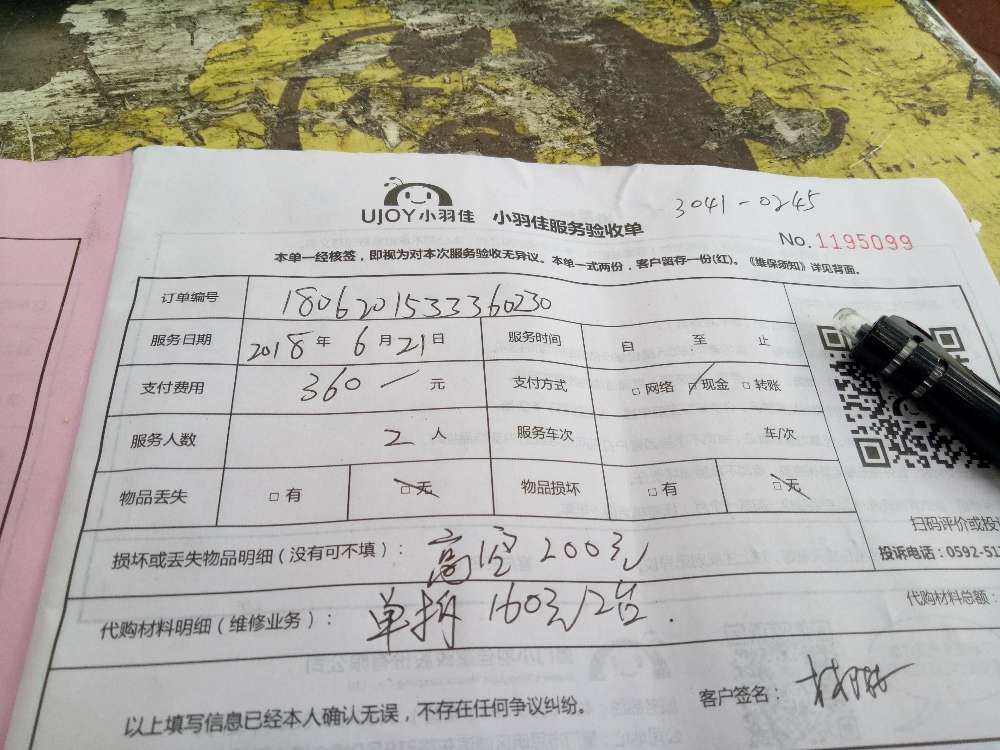 3041-0245
UJOY小羽佳 小羽佳服务验收单
No.1195099
本单一经核签，即视为对本次服务验收无异议。本单一式两份，客户留存一份(红)。《维保须知》详见背面。
订单编号 1806201533360230
服务日期 2018年 6月21日 服务时间 自 至 止
支付费用 360 — 元 支付方式 □网络 ☑现金 □转账
服务人数 2 人 服务车次 车/次
物品丢失 □有 □无 物品损坏 □有 □无
扫码评价或投诉
损坏或丢失物品明细（没有可不填）： 高空 200元
投诉电话：0592-51
代购材料明细（维修业务）： 单拆 160元/2台.
代购材料总额：
客户签名：
以上填写信息已经本人确认无误，不存在任何争议纠纷。